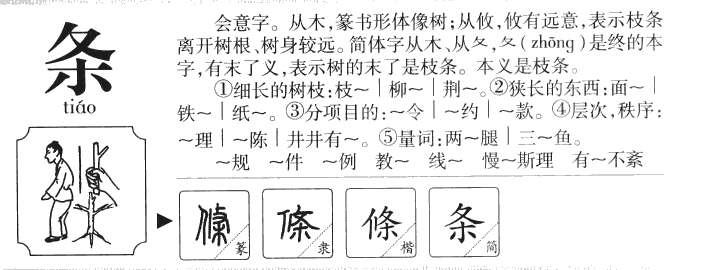 条
tiáo
会意字。从木,篆书形体像树;从攸,攸有远意,表示枝条
离开树根、树身较远。简体字从木、从夂,夂(zhōng)是终的本
字,有末了义,表示树的末了是枝条。本义是枝条。
①细长的树枝:枝～|柳～|荆～。②狭长的东西:面～|
铁～|纸～。③分项目的:～令|～约|～款。④层次,秩序:
～理|～陈|井井有～。⑤量词:两～腿|三～鱼。
～规 ～件 ～例 教～ 线～ 慢～斯理 有～不紊
條 篆 條 隶 條 楷 条 简